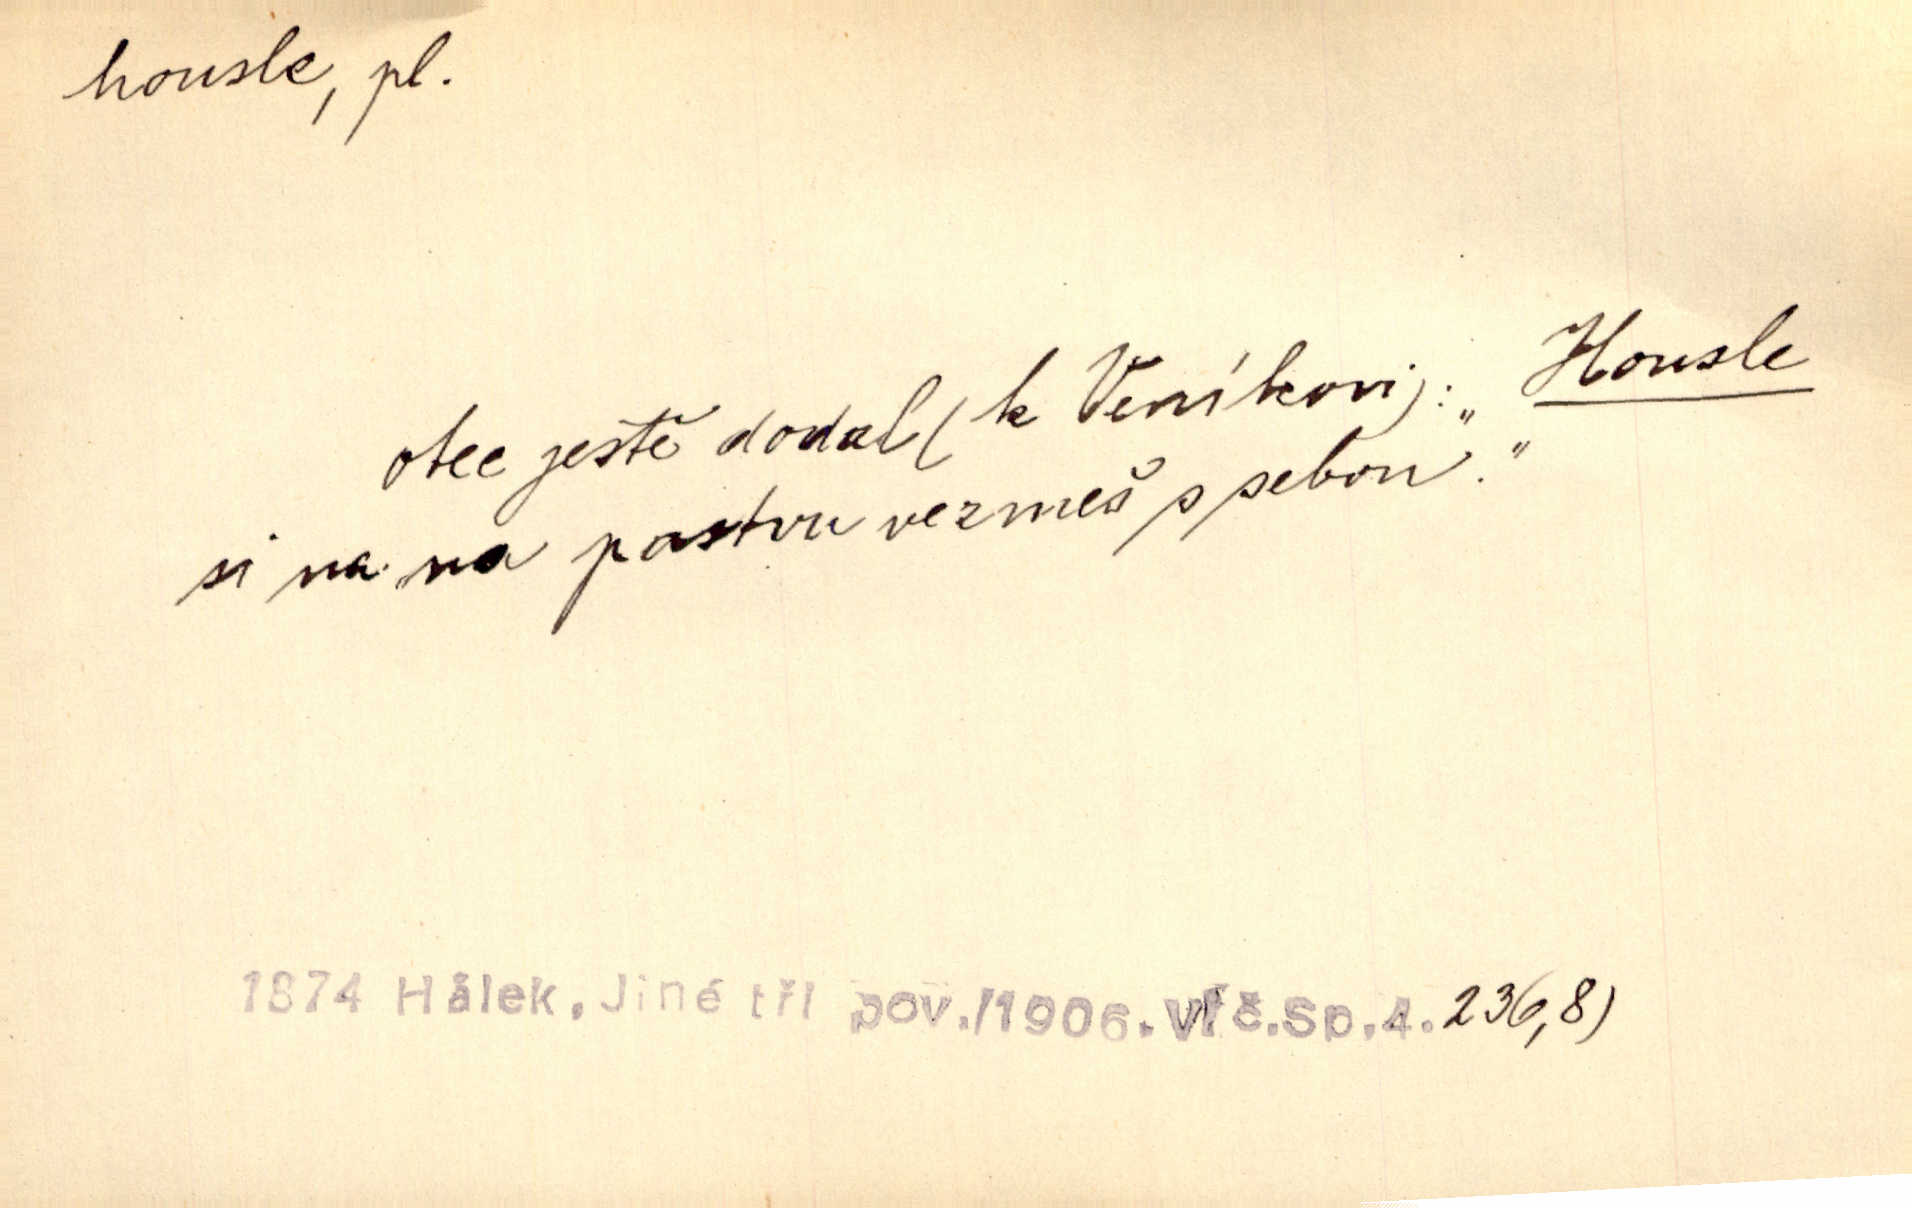 housle, pl.
otec ještě dodal (k Veníkovi): „Housle
si na na pastvu vezmeš s sebou."
1874 Hálek, Jiné tři pov./1906. Vlč.Sp.4. 236,8)